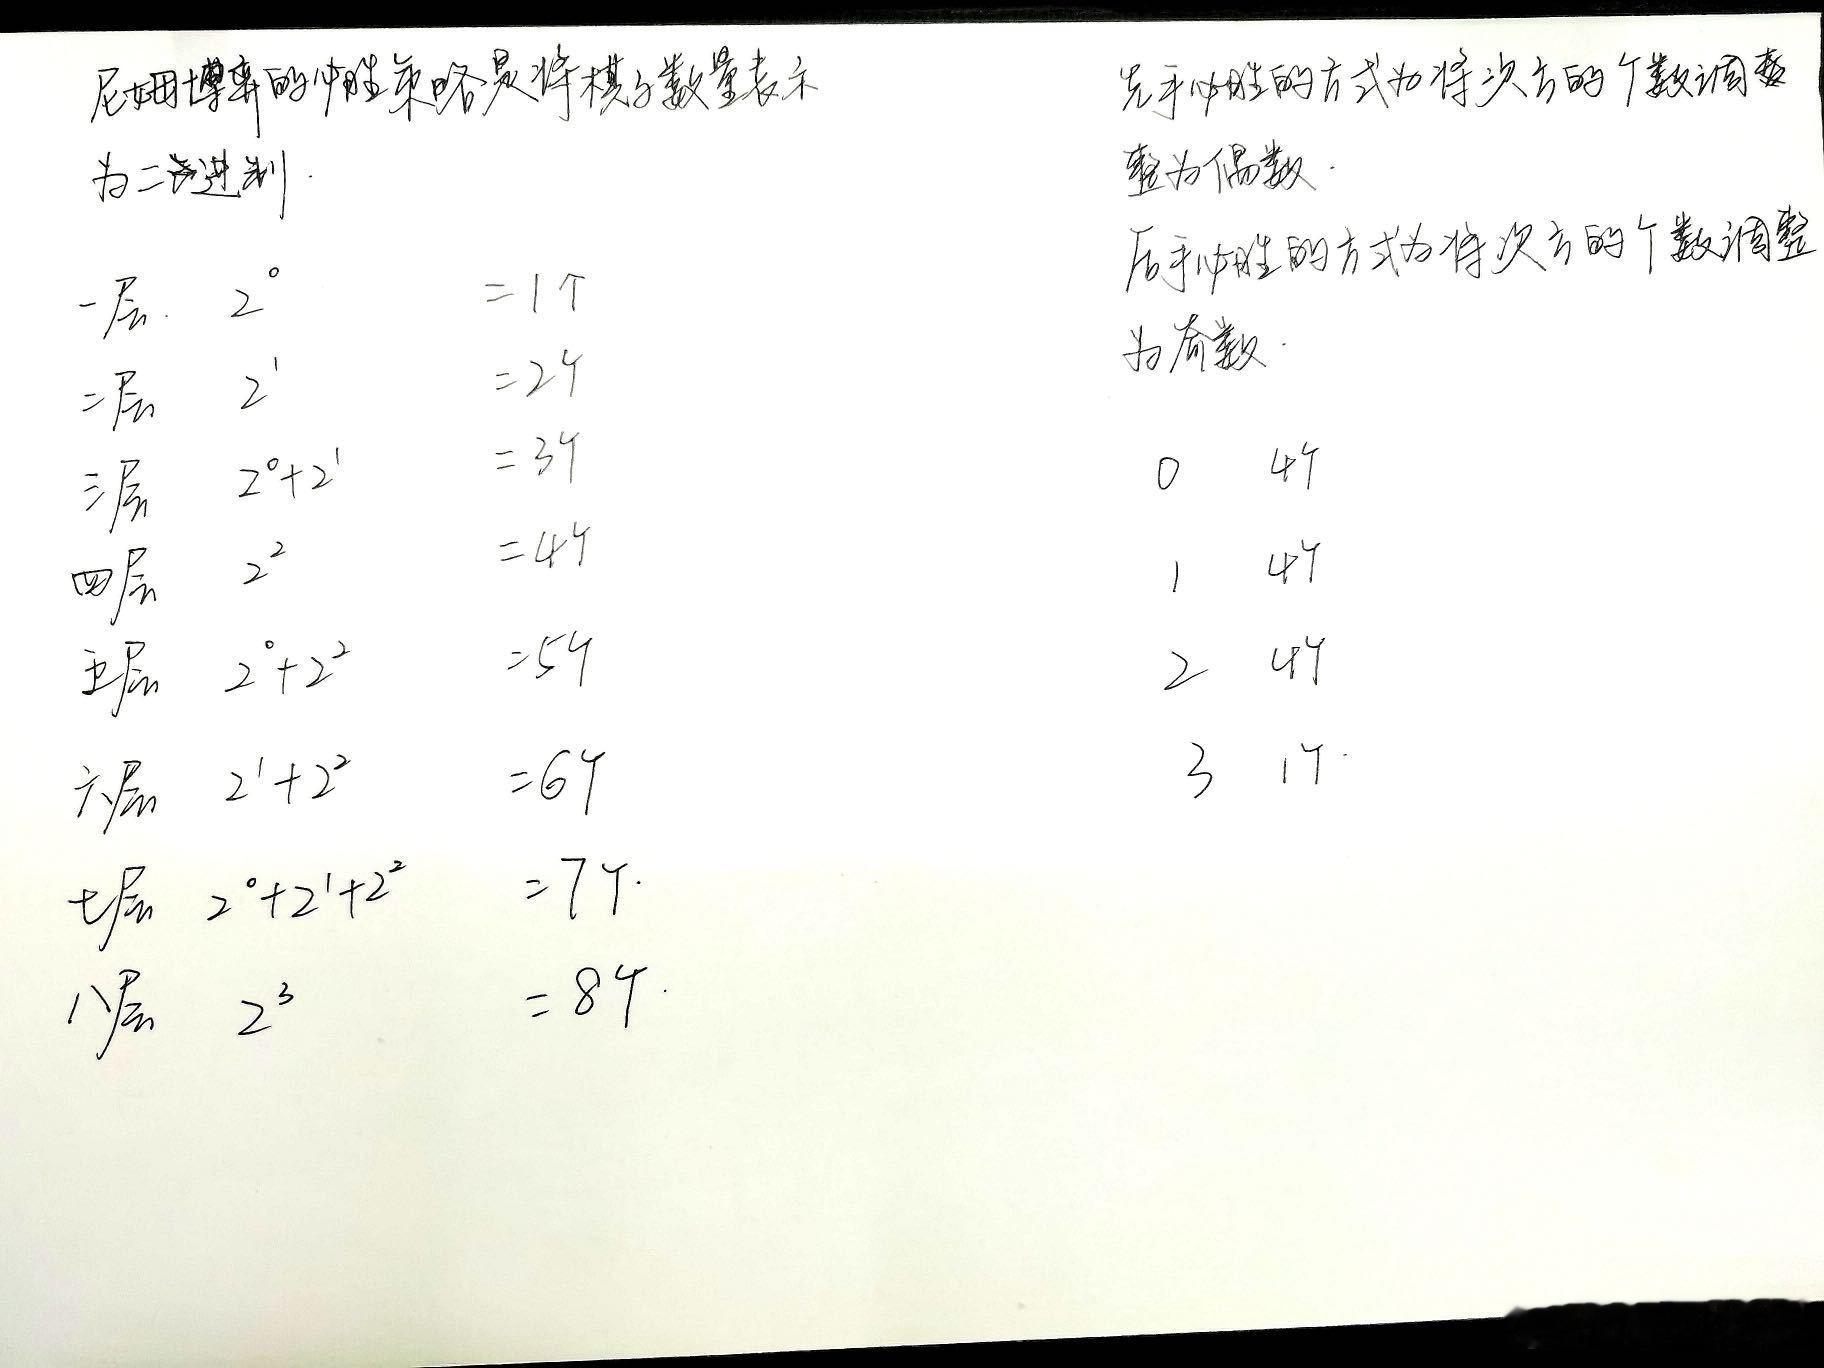 尼姆博弈的必胜策略是将棋子数量表示
为二进制.
一层. 2⁰ =1个
二层 2¹ =2个
三层 2⁰+2¹ =3个
四层 2² =4个
五层 2⁰+2² =5个
六层 2¹+2² =6个
七层 2⁰+2¹+2² =7个.
八层 2³ =8个.
先手必胜的方式为将次方的个数调整
整为偶数.
后手必胜的方式为将次方的个数调整
为奇数.
0 4个
1 4个
2 4个
3 1个.